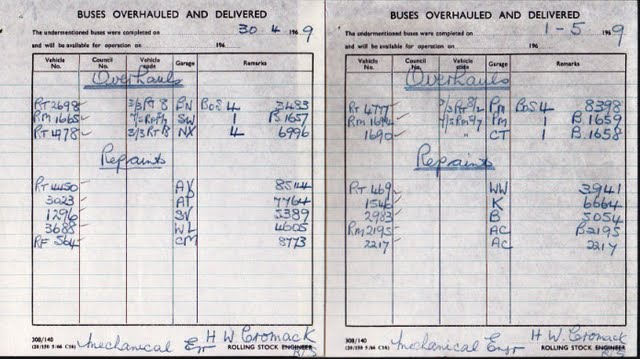 BUSES OVERHAULED AND DELIVERED
The undermentioned buses were completed on 30 4 1969
and will be available for operation on 196
Vehicle No. Council No. Vehicle code Garage Remarks
Overhauls
RT 2698 3/3RT 8 BN BOS 4 3483
RM 1665 SW 1 B.1657
RT 1478 3/3RT 8 NX 4 6996
Repaints
RT 4450 AV 8514
3023 AP 7764
1296 SV 5389
3688 WL 4605
RF 564 CM 8773
308/140
Mechanical Engr H W Cromack
ROLLING STOCK ENGINEER
BUSES OVERHAULED AND DELIVERED
The undermentioned buses were completed on 1-5 1969
and will be available for operation on 196
Vehicle No. Council No. Vehicle code Garage Remarks
Overhauls
RT 4777 3/3RT8/2 PM BOS 4 8398
RM 1694 PM 1 B.1659
1690 " CT 1 B.1658
Repaints
RT 469 WW 3941
1546 K 6664
2983 B 5054
RM 2195 AC B2195
2217 AC 2217
308/140
Mechanical Engr H. W. Cromack
ROLLING STOCK ENGINEER